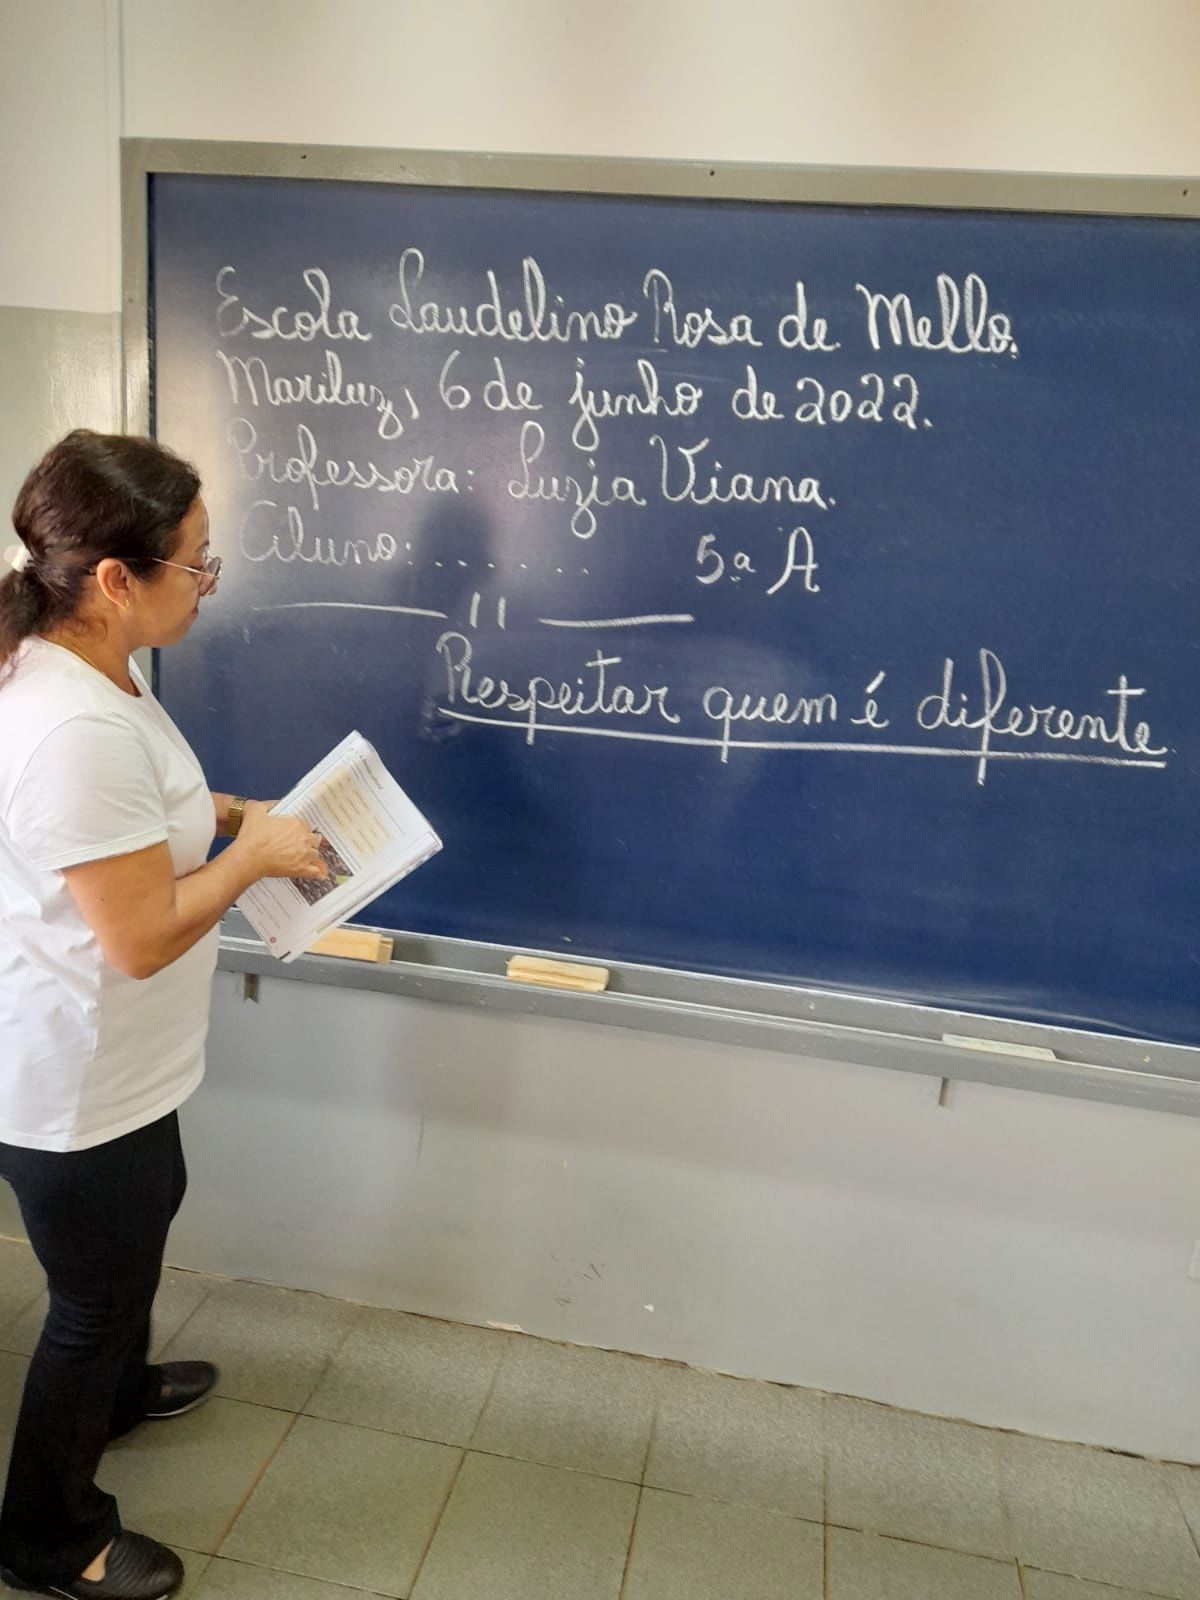 Escola Laudelino Rosa de Mello.
Mariluz, 6 de junho de 2022.
Professora: Luzia Viana.
Aluno: . . . . . . 5ª A
———— 11 ————
Respeitar quem é diferente